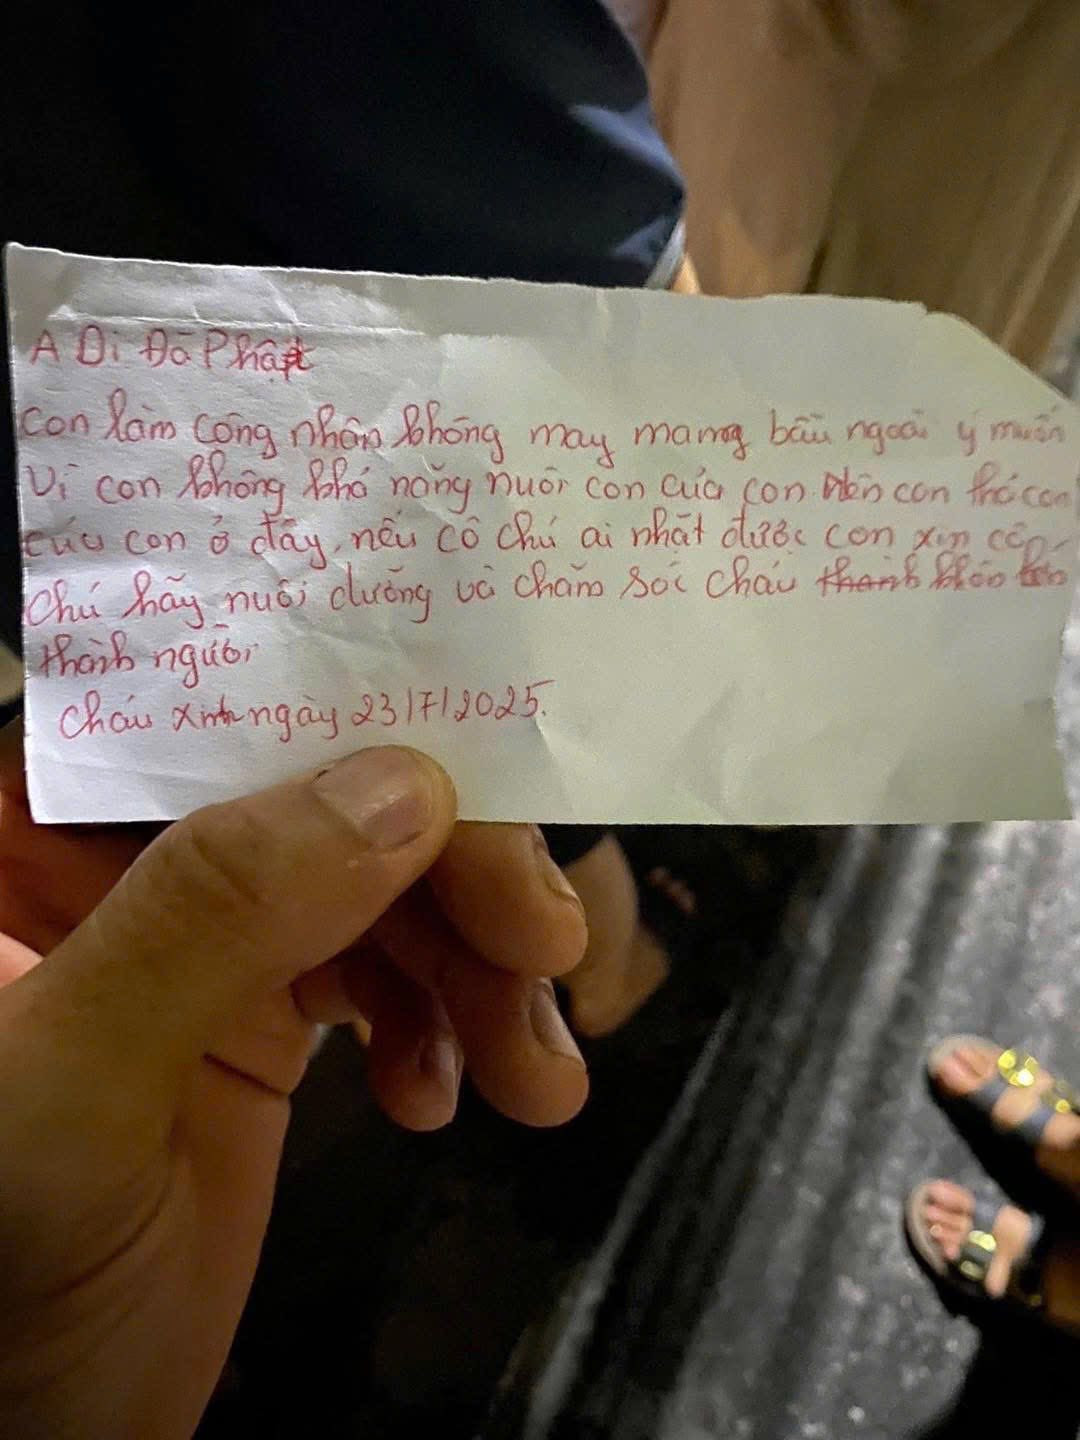 A Di Đà Phật
Con làm công nhân không may mang bầu ngoài ý muốn
Vì con không khả năng nuôi con của con. Nên con thả con
của con ở đây, nếu cô chú ai nhặt được con xin cô
Chú hãy nuôi dưỡng và chăm sóc cháu thành khôn lớn
thành người
Cháu xinh ngày 23/7/2025.